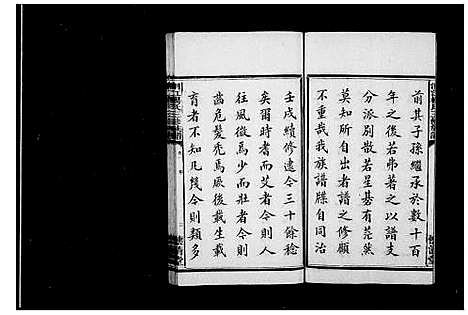 前其子孫繼承於數十百
年之後若弗著之以譜支
分派別散若星碁有茫然
莫知所自出者譜之修顧
不重哉我族譜牒自同治
壬戌續修迄今三十餘稔
矣爾時者而艾者今則人
往風微馬少而壯者今則
齒危髮禿馬厥後載生載
育者不知凡幾今則類多